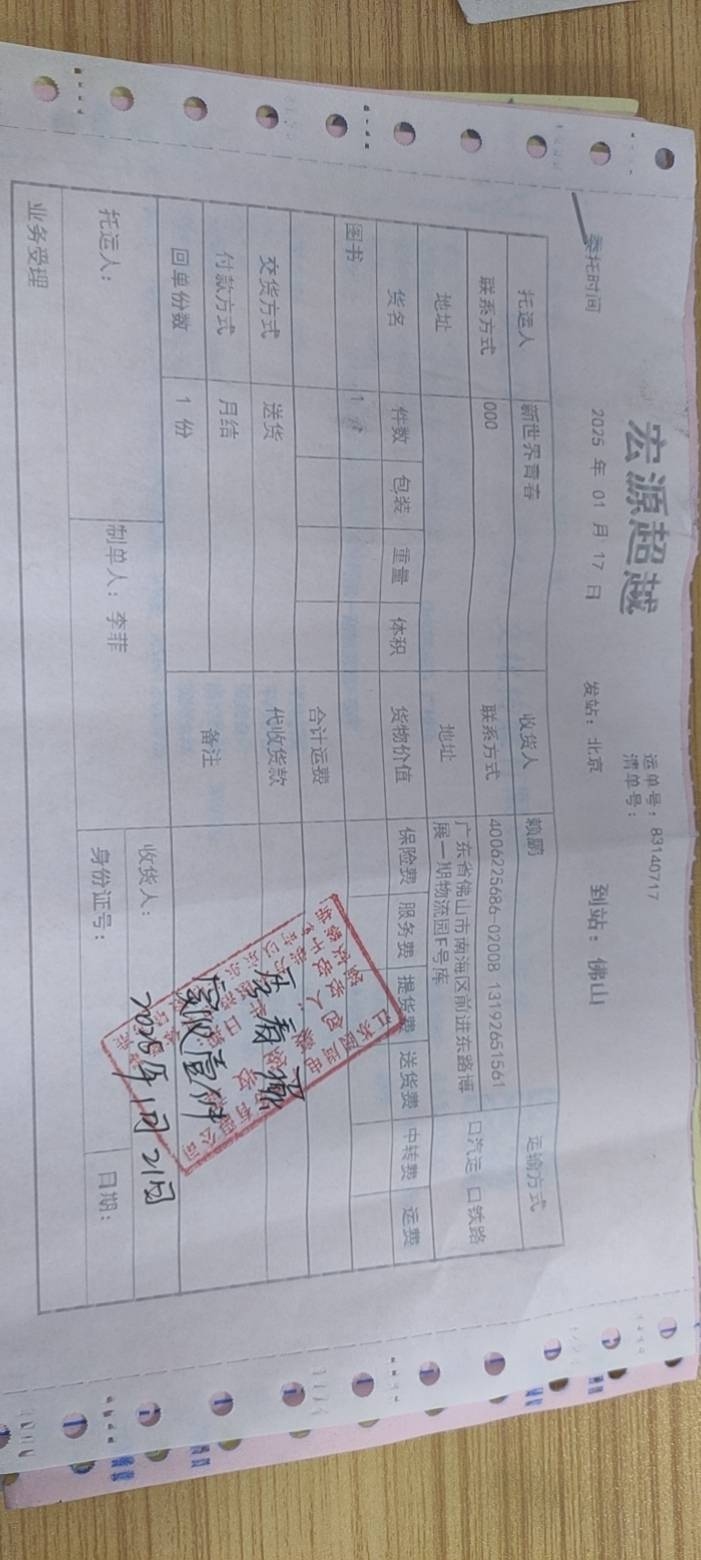 宏源超越
运单号：83140717
清单号：
委托时间 2025 年 01 月 17 日 发站：北京 到站：佛山
托运人 新世界青春 收货人 赖鹏 运输方式
联系方式 000 联系方式 4006225686-02008 13192651561 口汽运 口铁路
地址 地址 广东省佛山市南海区前进东路博
展一期物流园F号库
货名 件数 包装 重量 体积 货物价值 保险费 服务费 提货费 送货费 中转费 运费
图书 1
合计运费
交货方式 送货 代收货款
付款方式 月结 备注
回单份数 1 份
实收壹件
2025年1月21日
托运人： 制单人：李菲 收货人：
身份证号： 日期：
业务受理